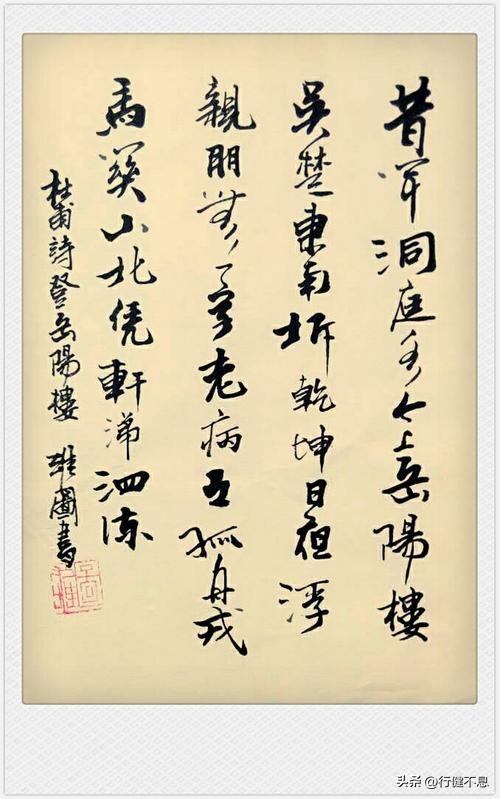 昔聞洞庭水今上岳陽樓
吳楚東南坼乾坤日夜浮
親朋無一字老病有孤舟戎
馬關山北凭軒涕泗流
杜甫詩登岳陽樓 圖書
头条 @行健不息